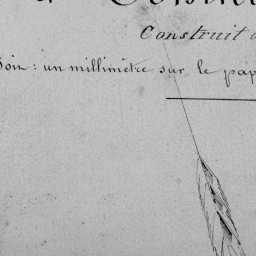 Construit
Soit : un millimètre sur le pap